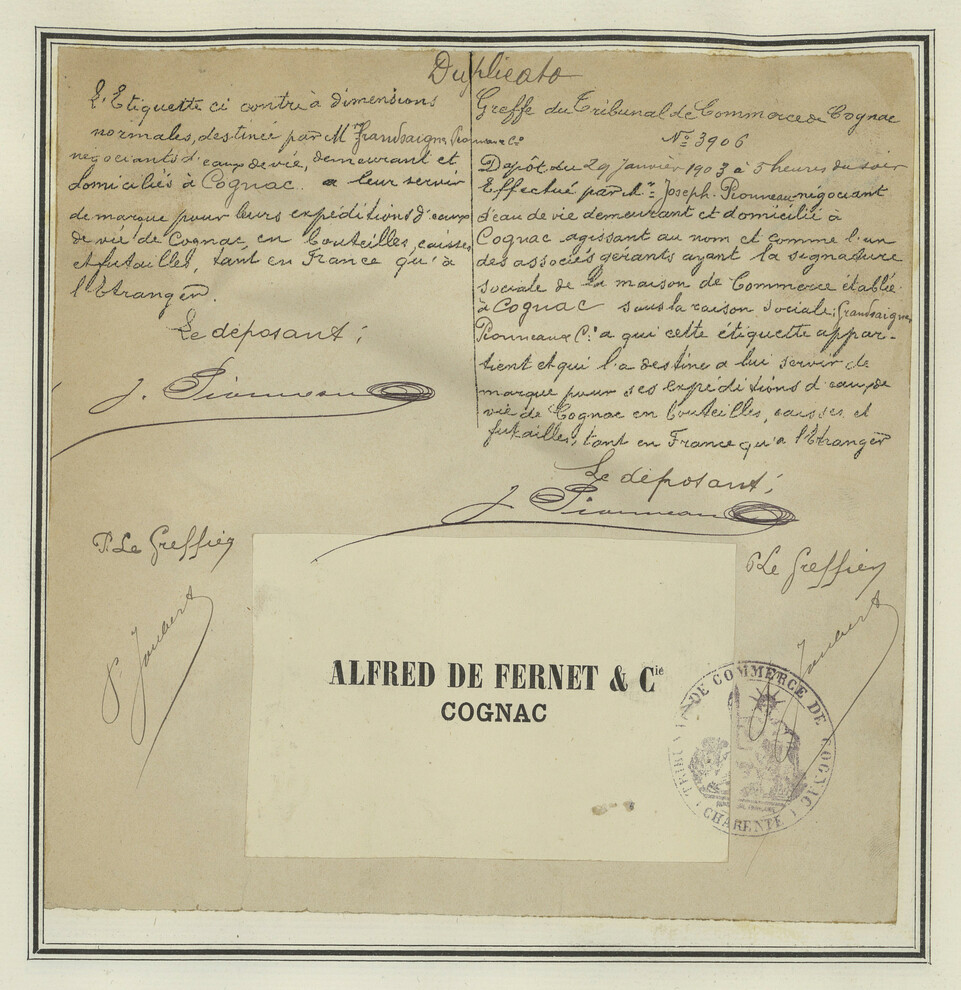 Duplicata
L'Etiquette ci contre à dimensions
normales, destinée par Mrs Grandsaigne Pionneau & Co
négociants d'eaux de vie, demeurant et
domiciliés à Cognac a leur servir
de marque pour leurs expéditions d'eaux
de vie de Cognac, en bouteilles, caisses
et futailles, tant en France qu'à
l'Etranger.
Le déposant;
J. Pionneau
P. Le Greffier
P. Joubert
Greffe du Tribunal de Commerce de Cognac
No 3906
Depôt du 29 Janvier 1903 à 5 heures du soir
Effectué par Mr. Joseph Pionneau négociant
d'eau de vie demeurant et domicilié à
Cognac agissant au nom et comme l'un
des associés gérants ayant la signature
sociale de la maison de Commerce établie
à Cognac sous la raison sociale; Grandsaigne
Pionneau & Co. a qui cette étiquette appar-
tient et qui l'a destinée a lui servir de
marque pour ses expéditions d'eaux de
vie de Cognac en bouteilles, caisses, et
futailles, tant en France qu'a l'Etranger
Le déposant;
J. Pionneau
P. Le Greffier
Joubert
ALFRED DE FERNET & Cie
COGNAC
TRIBUNAL DE COMMERCE DE COGNAC
CHARENTE